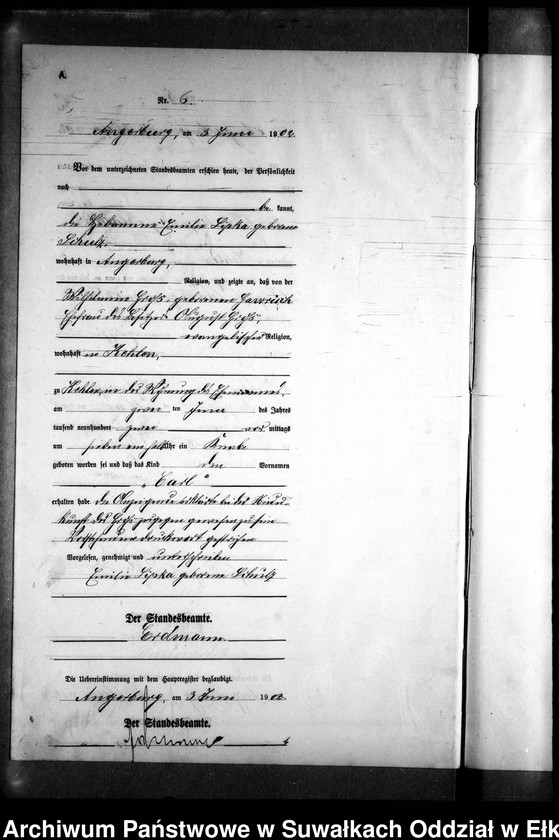 A.
Nr. 6.
Angerburg, am 3 Juni 1902.
Vor dem unterzeichneten Standesbeamten erschien heute, der Persönlichkeit
nach
be kannt,
die Hebamme Emilie Lipka geborene
Schulz,
wohnhaft in Angerburg,
Religion, und zeigte an, daß von der
Wilhelmine geborenen
Ehefrau des Besitzers August
evangelischer Religion,
wohnhaft in Kehlen,
zu Kehlen, in der Wohnung des Ehemanns,
am zwei ten Juni des Jahres
tausend neunhundert zwei vor mittags
um sieben ein halb Uhr ein Knabe
geboren worden sei und daß das Kind den Vornamen
„Carl“
erhalten habe. die Anzeigende erklärte bei der Nieder-
kunft der zugegen gewesen zu sein
Druckwort gestrichen
Vorgelesen, genehmigt und unterschrieben
Emilie Lipka geborene Schulz
Der Standesbeamte.
Erdmann.
Die Uebereinstimmung mit dem Hauptregister beglaubigt.
Angerburg, am 3 Juni 1902.
Der Standesbeamte.
Erdmann
Archiwum Państwowe w Suwałkach Oddział w Ełk